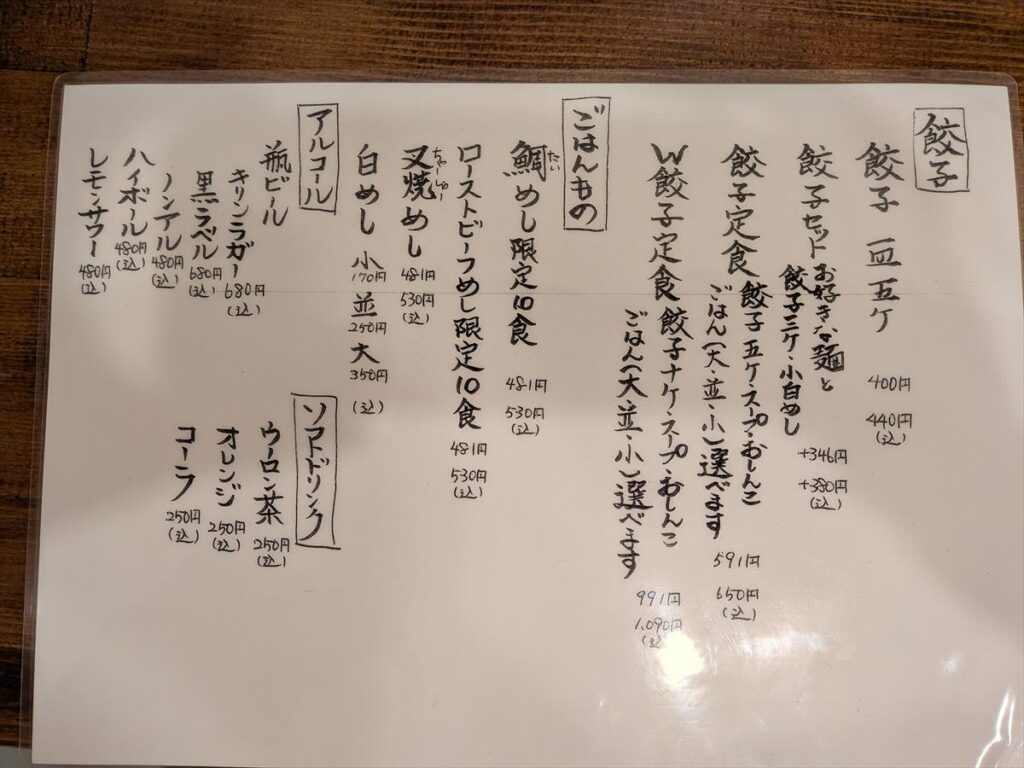 餃子
餃子 一皿五ケ 400円 440円(込)
餃子セット お好きな麺と
餃子三ケ・小白めし +346円 +380円(込)
餃子定食 餃子五ケ・スープ・おしんこ
ごはん(大・並・小)選べます 591円 650円(込)
W餃子定食 餃子十ケ・スープ・おしんこ
ごはん(大・並・小)選べます 991円 1,090円(込)
ごはんもの
鯛めし限定10食 481円 530円(込)
たい
ローストビーフめし限定10食 481円 530円(込)
叉焼めし 481円 530円(込)
ちゃーしゅー
白めし 小 170円 並 250円 大 350円 (込)
アルコール
瓶ビール
キリンラガー 680円(込)
黒ラベル 680円(込)
ノンアル 480円(込)
ハイボール 480円(込)
レモンサワー 480円(込)
ソフトドリンク
ウーロン茶 250円(込)
オレンジ 250円(込)
コーラ 250円(込)